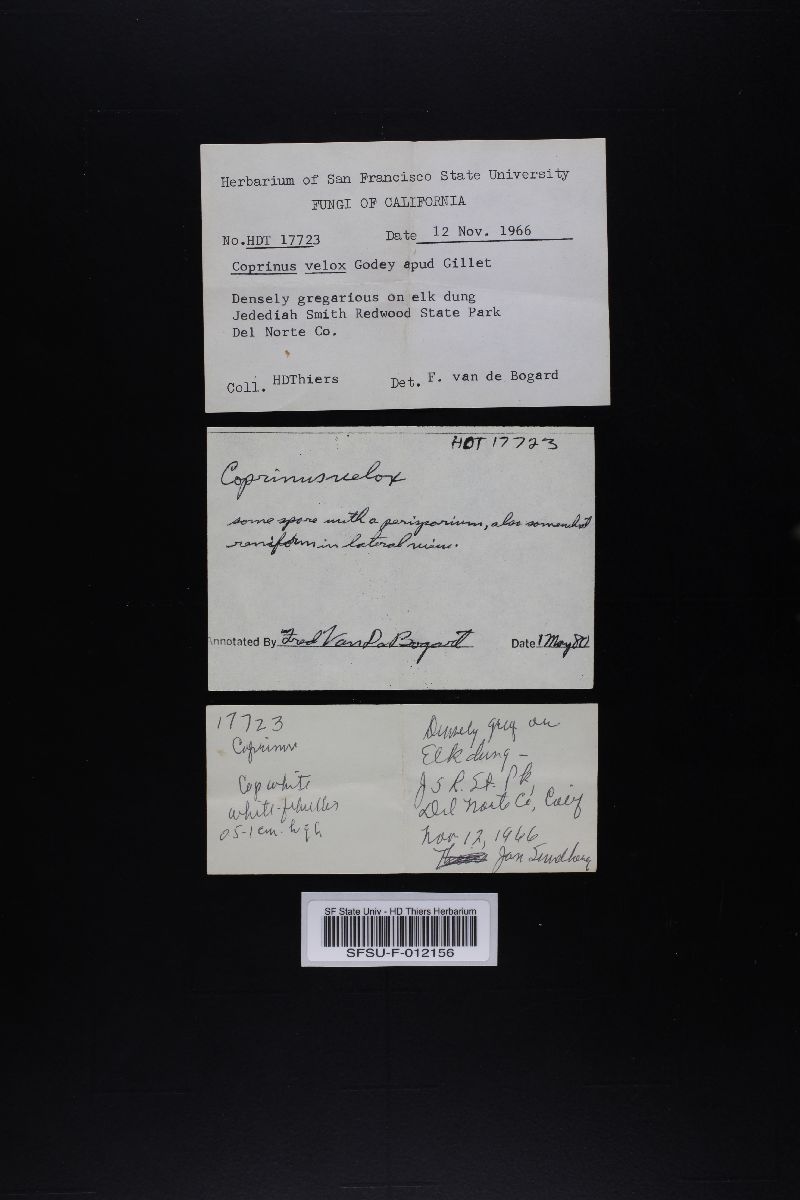 Herbarium of San Francisco State University
FUNGI OF CALIFORNIA
No. HDT 17723 Date 12 Nov. 1966
Coprinus velox Godey apud Gillet
Densely gregarious on elk dung
Jedediah Smith Redwood State Park
Del Norte Co.
Coll. HDThiers Det. F. van de Bogard
HDT 17723
Coprinus velox
some spore with a perisporium, also somewhat
reniform in lateral view.
Annotated By Fred Van De Bogart Date 1 May 80
17723
Coprinus
Cap white
white
0.5-1 cm. high
Densely greg on
Elk dung -
J S R. St. Pk,
Del Norte Co, Calif
Nov. 12, 1966
Jan Sundberg
SF State Univ - HD Thiers Herbarium
SFSU-F-012156